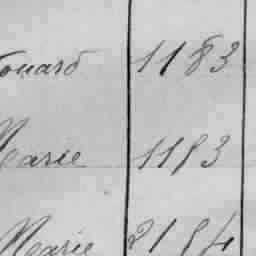 ouard 1183
Marie 1183
Marie 2184